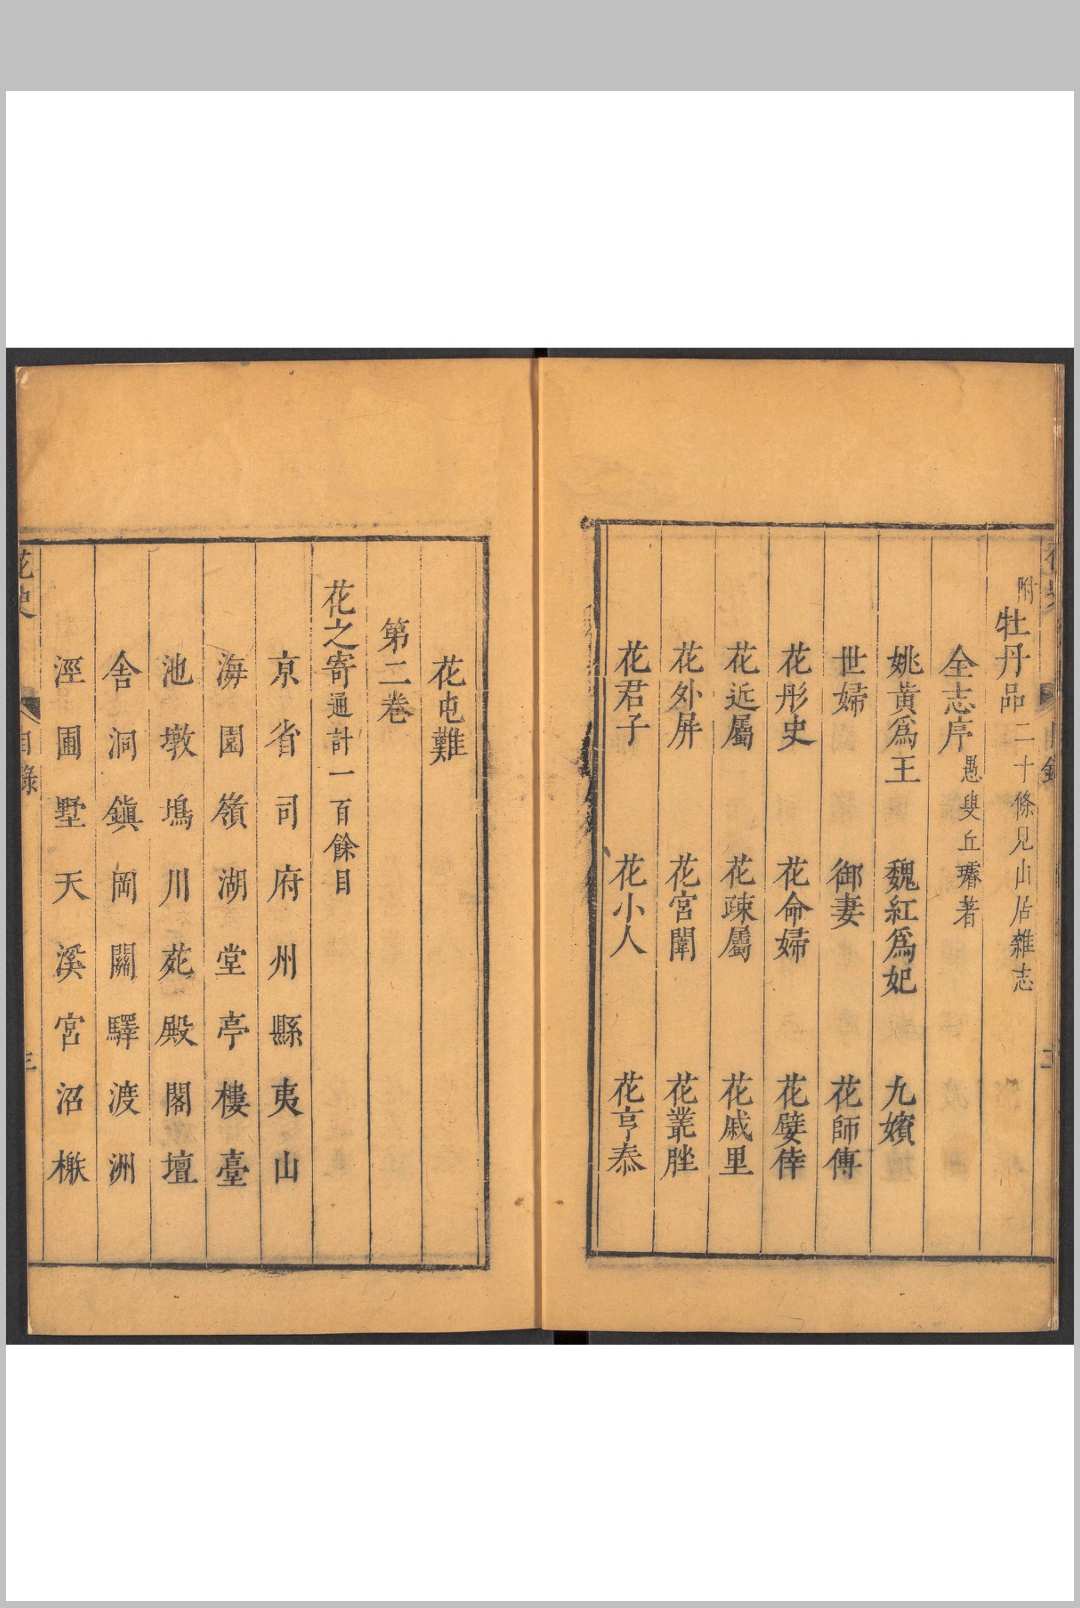 附牡丹品二十條見山居雜志
全志序愚叟丘璿著
姚黃爲王 魏紅爲妃 九嬪
世婦 御妻 花師傅
花彤史 花命婦 花嬖倖
花近屬 花疎屬 花戚里
花外屏 花宮闈 花叢脞
花君子 花小人 花亨泰
花屯難
第二卷
花之寄通計一百餘目
京 省 司 府 州 縣 夷 山
海 園 嶺 湖 堂 亭 樓 臺
池 墩 塢 川 苑 殿 閣 壇
舍 洞 鎮 岡 關 驛 渡 洲
涇 圃 墅 天 溪 宮 沼
花史 目錄